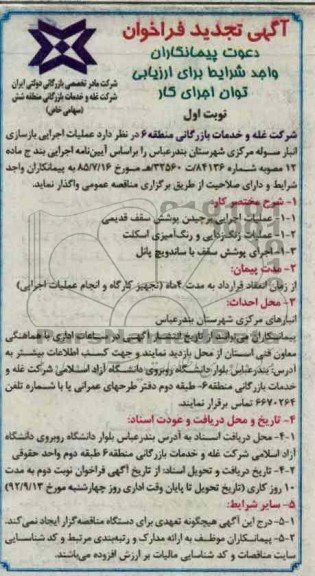 آگهی تجدید فراخوان
دعوت پیمانکاران
واجد شرایط برای ارزیابی
توان اجرای کار
نوبت اول
شرکت مادر تخصصی بازرگانی دولتی ایران
شرکت غله و خدمات بازرگانی منطقه شش
(سهامی خاص)
شرکت غله و خدمات بازرگانی منطقه ۶ در نظر دارد عملیات اجرایی بازسازی
انبار سوله مرکزی شهرستان بندرعباس را براساس آیین‌نامه اجرایی بند ج ماده
۱۲ مصوبه شماره ۸۴۱۳۶/ت ۳۳۵۶۰هـ مورخ ۸۵/۷/۱۶ به پیمانکاران واجد
شرایط و دارای صلاحیت از طریق برگزاری مناقصه عمومی واگذار نماید.
۱- شرح مختصر کار:
۱-۱- عملیات اجرایی برچیدن پوشش سقف قدیمی
۱-۲- عملیات زنگ‌زدایی و رنگ‌آمیزی اسکلت
۱-۳- اجرای پوشش سقف با ساندویچ پانل
۲- مدت پیمان:
از زمان انعقاد قرارداد به مدت ۴ماه (تجهیز کارگاه و انجام عملیات اجرایی)
۳- محل احداث:
انبارهای مرکزی شهرستان بندرعباس
پیمانکاران می‌توانند از تاریخ انتشار آگهی در ساعات اداری با هماهنگی
معاون فنی استان از محل بازدید نمایند و جهت کسب اطلاعات بیشتر به
آدرس: بندرعباس بلوار دانشگاه روبروی دانشگاه آزاد اسلامی شرکت غله و
خدمات بازرگانی منطقه۶- طبقه دوم دفتر طرحهای عمرانی یا با شماره تلفن
۶۶۷۰۲۶۴ تماس برقرار نمایند.
۴- تاریخ و محل دریافت و عودت اسناد:
۴-۱- محل دریافت اسناد به آدرس بندرعباس بلوار دانشگاه روبروی دانشگاه
آزاد اسلامی شرکت غله و خدمات بازرگانی منطقه۶ طبقه دوم واحد حقوقی
۴-۲- تاریخ دریافت و تحویل اسناد: از تاریخ آگهی فراخوان نوبت دوم به مدت
۱۰ روز کاری (تاریخ تحویل تا پایان وقت اداری روز چهارشنبه مورخ ۹۲/۹/۱۳)
۵- سایر شرایط:
۵-۱- درج این آگهی هیچگونه تعهدی برای دستگاه مناقصه‌گزار ایجاد نمی‌کند.
۵-۲- پیمانکاران موظف به ارائه مدارک و رتبه‌بندی مرتبط و کد شناسایی
سایت مناقصات و کد شناسایی مالیات بر ارزش افزوده می‌باشند.